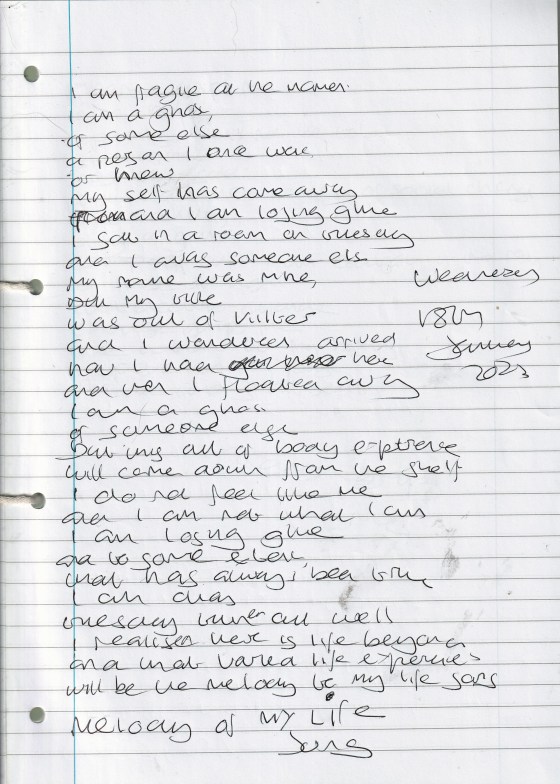 I am fragile at the moment
I am a ghost,
of some else
a person I once was
or knew
my self has come away
and I am losing glue
I sat in a room on tuesday
and I was someone else
my name was mine,
but my time
was out of kilter
and I wondered arrived
how I had here
and then I floated away
I am a ghost
of someone else
But this out of body experience
will come down from the shelf
I do not feel like me
and I am not what I am
I am losing glue
and to some extent
that has always been true
I am okay
tuesday turned out well
I realised there is life beyond
and that varied life experiences
will be the melody to my life song
Wednesday
18th
January
2023
Melody of My Life
Song